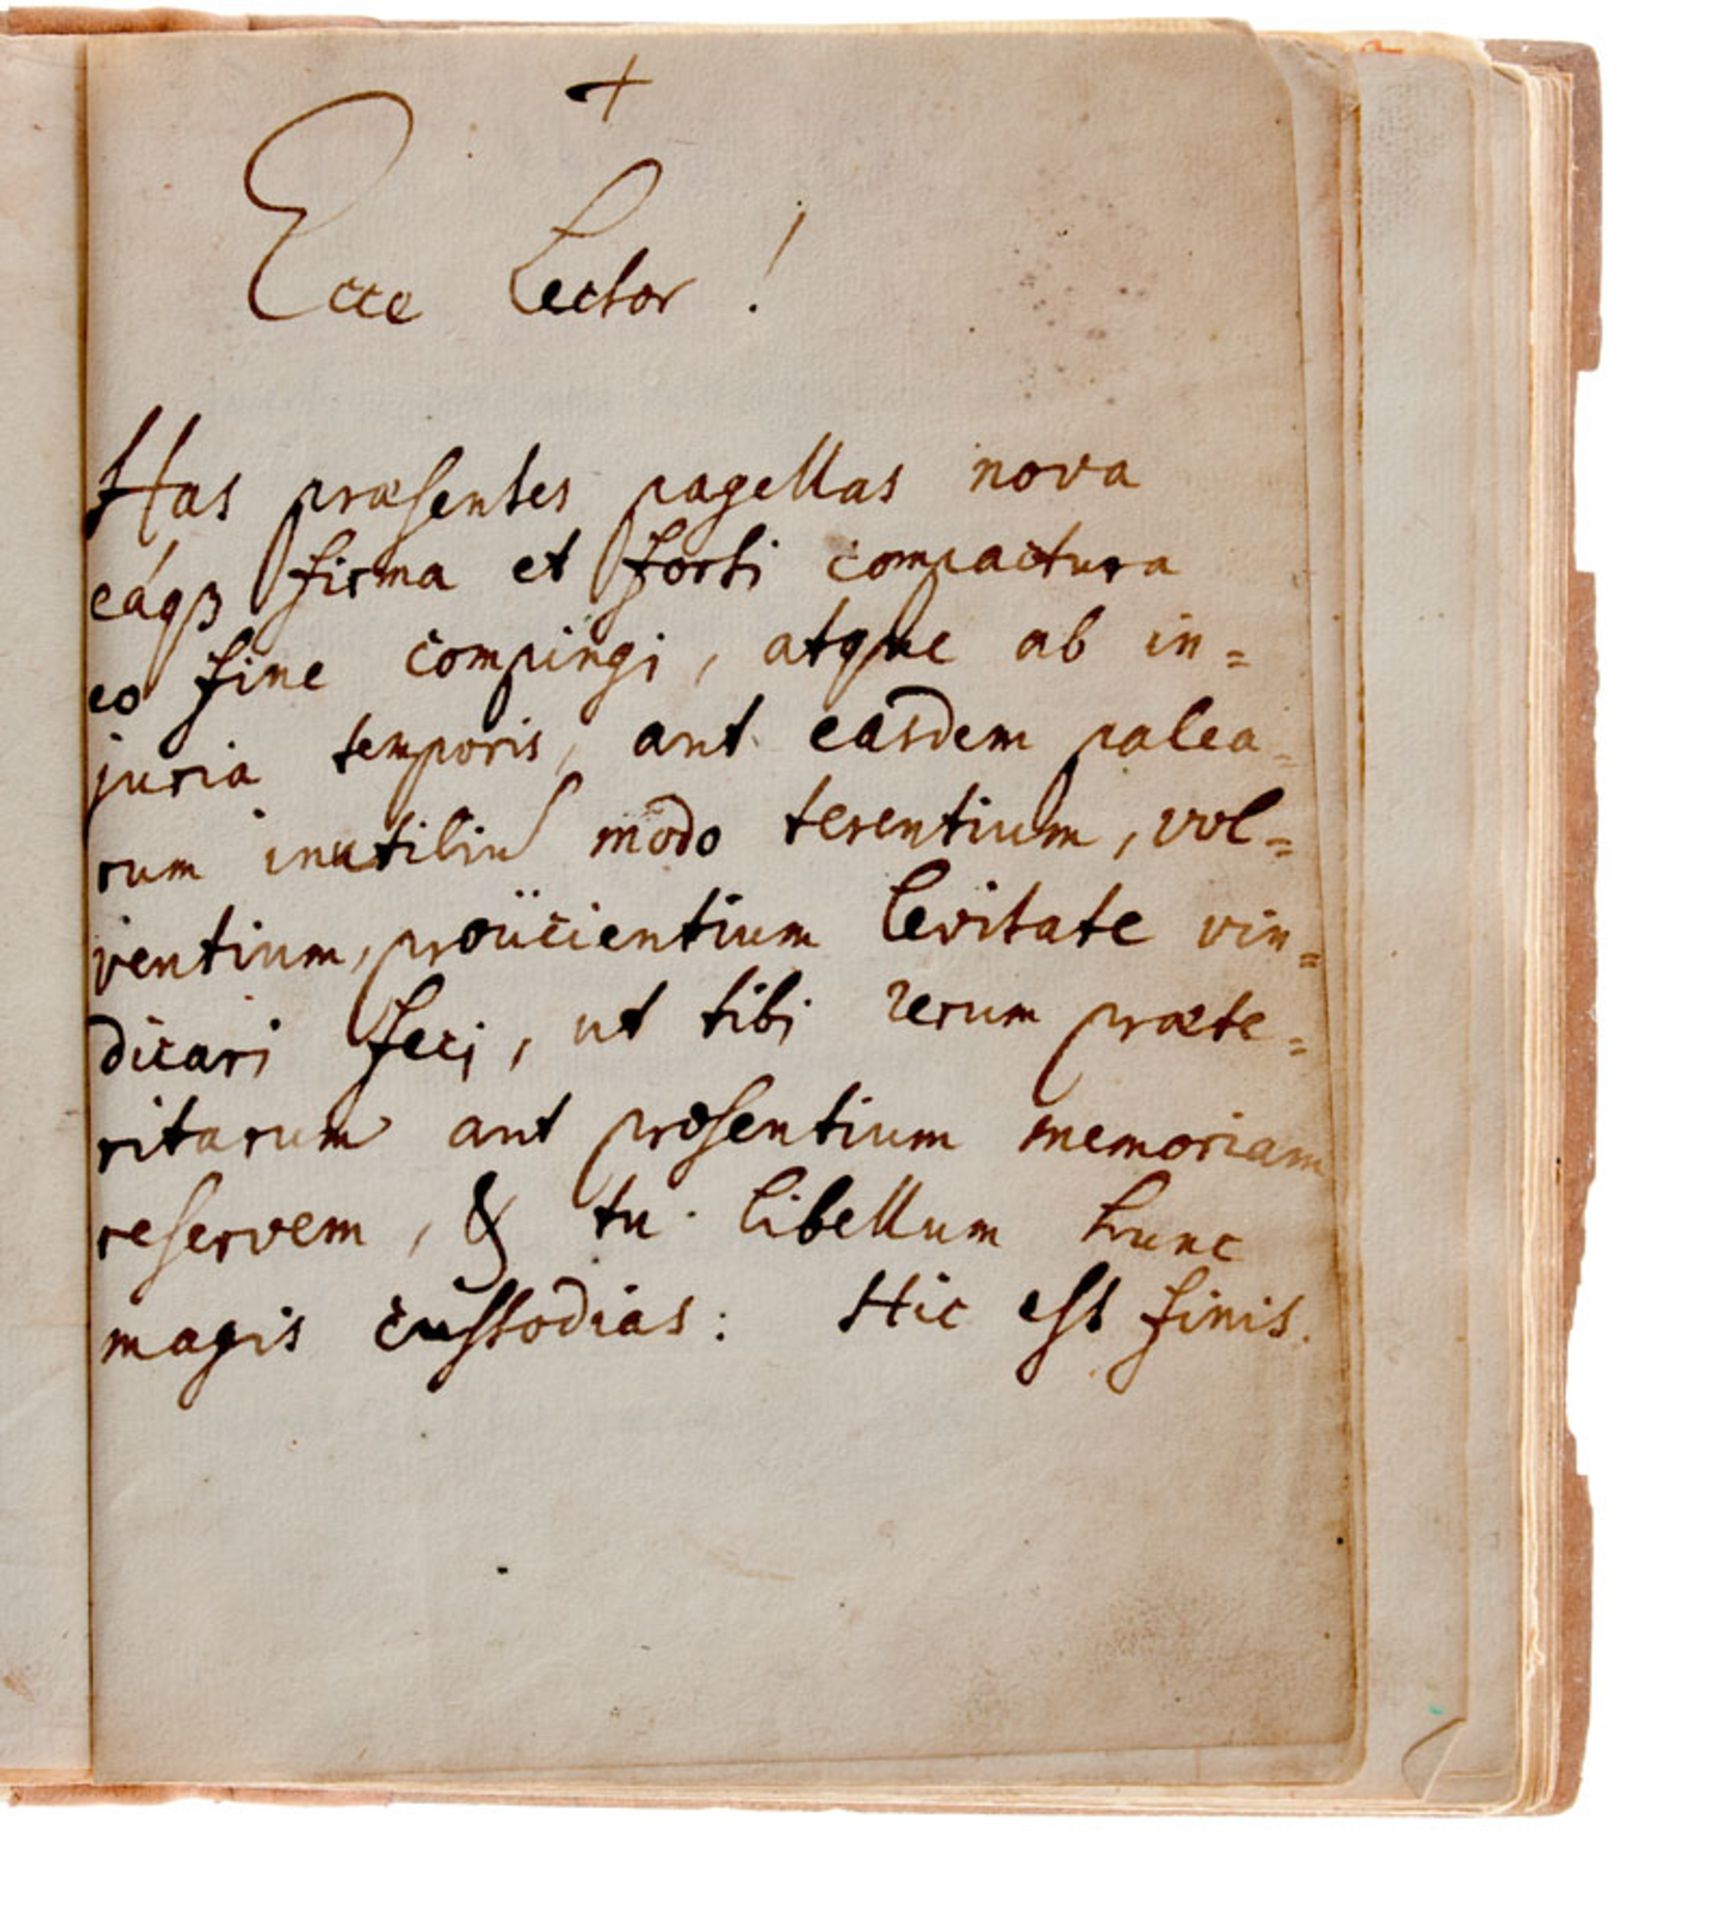 +
Ecce Lector!
Has præsentes pagellas nova
eáqꝫ firma et forti compactura
eo fine compingi, atque ab in=
juria temporis, aut easdem palea=
rum inutiliũ modo terentium, vol=
ventium, proiicientium levitate vin=
dicari feci, ut tibi rerum præte=
ritarum aut præsentium memoriam
reservem, & tu libellum hunc
magis custodias: Hic est finis.